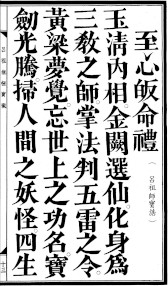 至心皈命禮
（呂祖師寶誥）
玉清內相。金闕選仙。化身為
三教之師。掌法判五雷之令。
黃粱夢覺。忘世上之功名。寶
劍光騰。掃人間之妖怪。四生